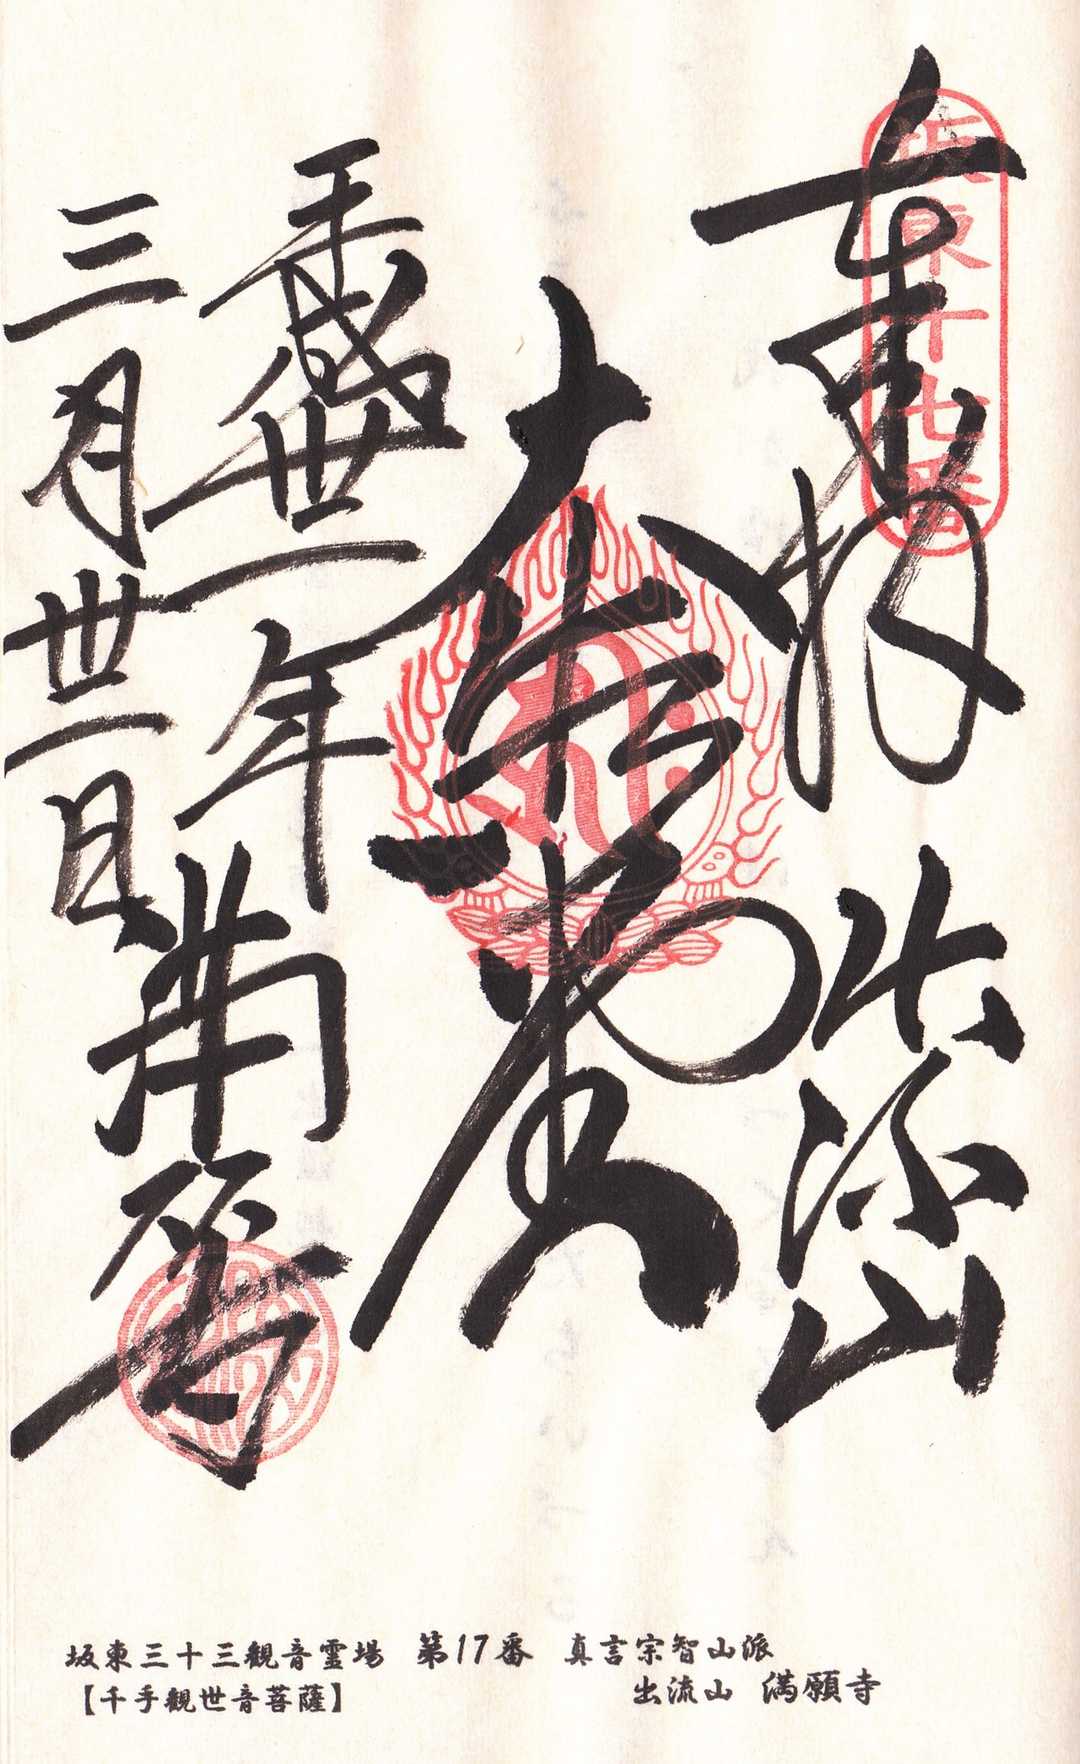 坂東十七番
奉拝　出流山
大
平成丗一年
三月丗一日
満願寺
坂東三十三観音霊場　第17番　真言宗智山派
【千手觀世音菩薩】　出流山　満願寺